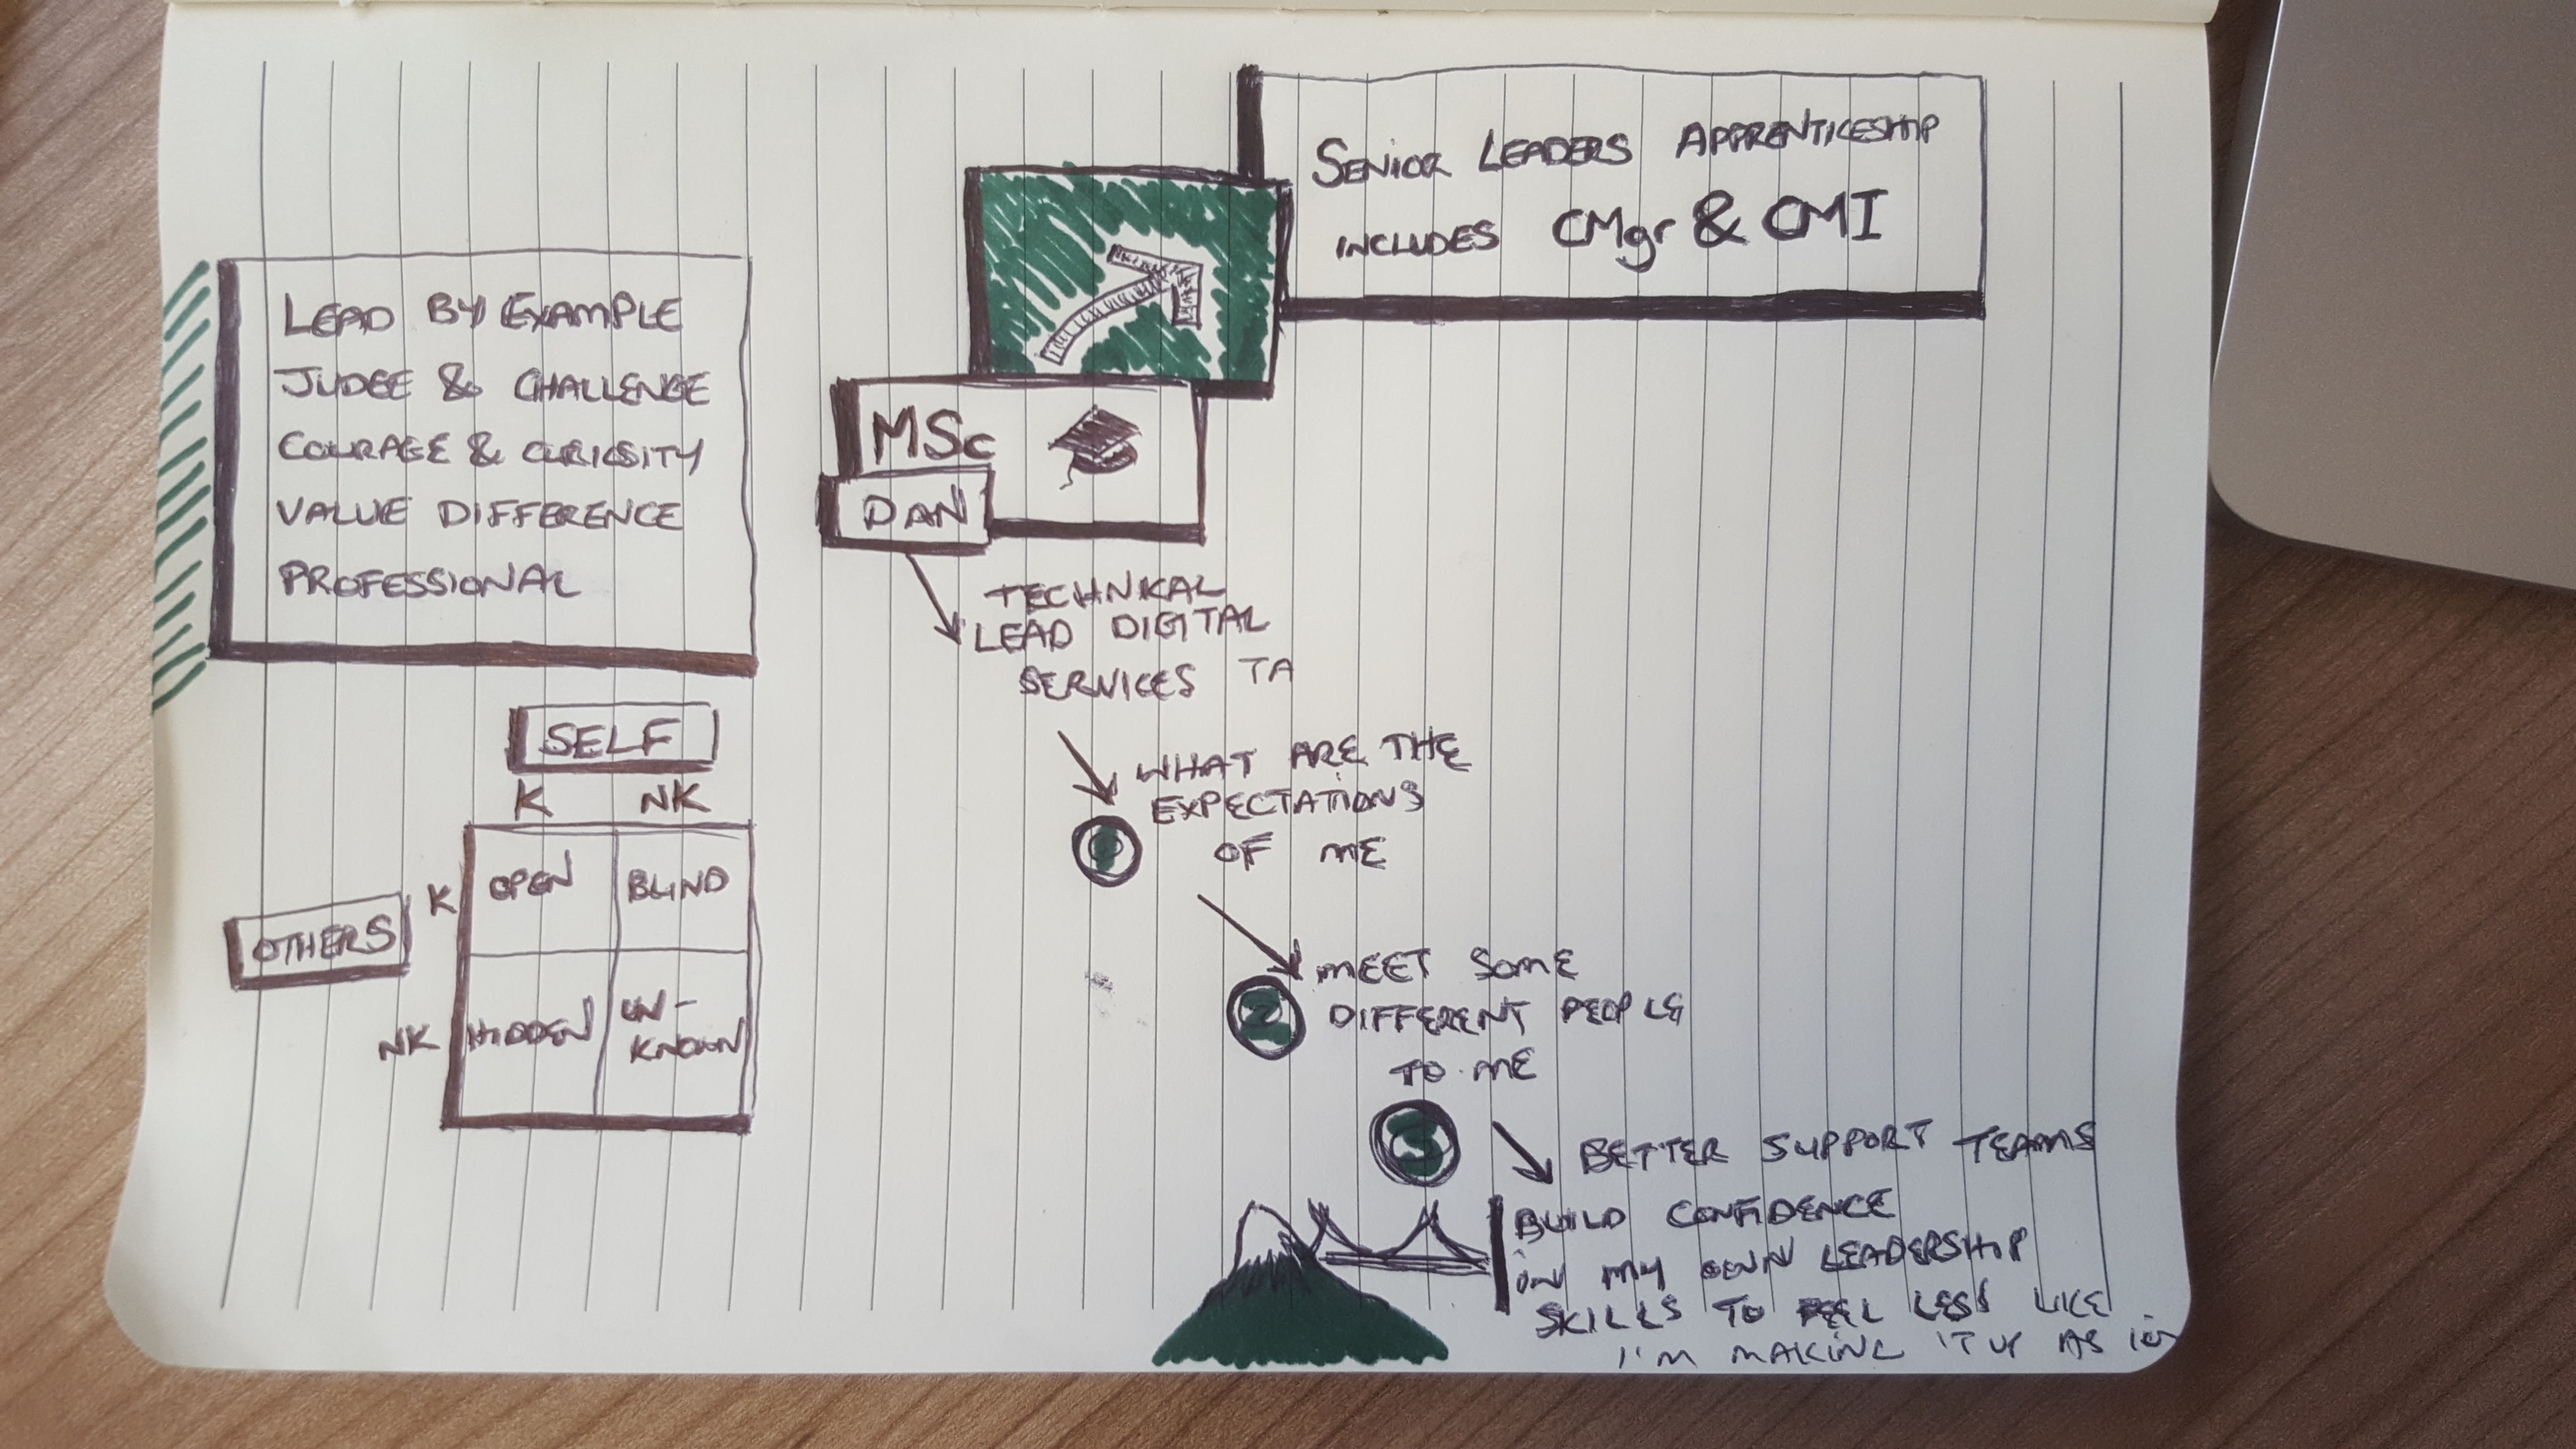 SENIOR LEADERS APPRENTICESHIP
INCLUDES CMgr & CMI
LEAD BY EXAMPLE
JUDGE & CHALLENGE
COURAGE & CURIOSITY
VALUE DIFFERENCE
PROFESSIONAL
MSc
DAN
TECHNICAL
LEAD DIGITAL
SERVICES TA
SELF
K NK
OTHERS
K
OPEN BLIND
NK
HIDDEN UN-
KNOWN
WHAT ARE THE
EXPECTATIONS
OF ME
2
MEET SOME
DIFFERENT PEOPLE
TO ME
3
BETTER SUPPORT TEAMS
BUILD CONFIDENCE
IN MY OWN LEADERSHIP
SKILLS TO FEEL LESS LIKE
I'M MAKING IT UP AS